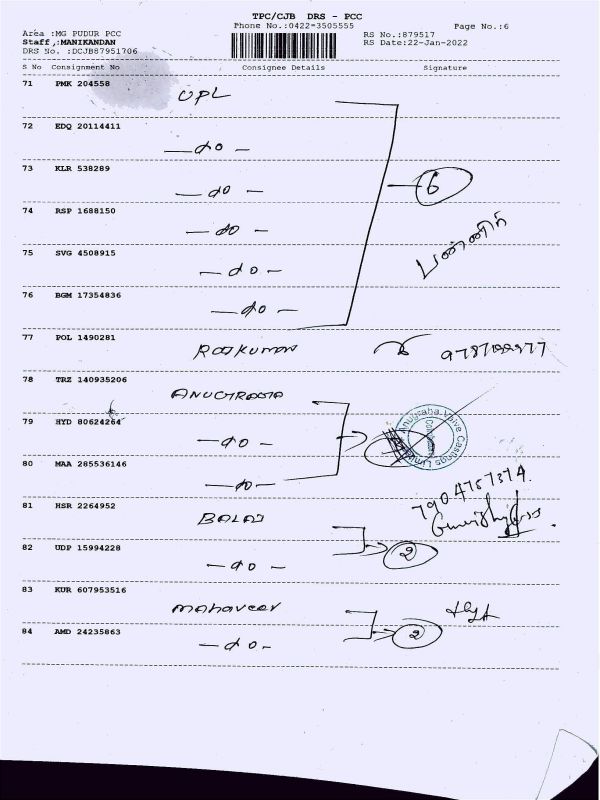 TPC/CJB DRS - PCC
Phone No.:0422-3505555
Page No.:6
Area :MG PUDUR PCC
RS No.:879517
Staff :MANIKANDAN
RS Date:22-Jan-2022
DRS No. :DCJB87951706
S No Consignment No Consignee Details Signature
71 PMK 204558 UPL
72 EDQ 20114411 - do -
73 KLR 538289 - do -
6
74 RSP 1688150 - do -
75 SVG 4508915 - do -
76 BGM 17354836 - do -
77 POL 1490281 RAJKUMAR
78 TRZ 140935206 ANUGRAHA
79 HYD 80624264 - do -
Anugraha Valve Castings Limited
80 MAA 285536146 - do -
7904757374
81 HSR 2264952 BALAJ
82 UDP 15994228 - do - 2
83 KUR 607953516 Mahaveer
84 AMD 24235863 - do - 2